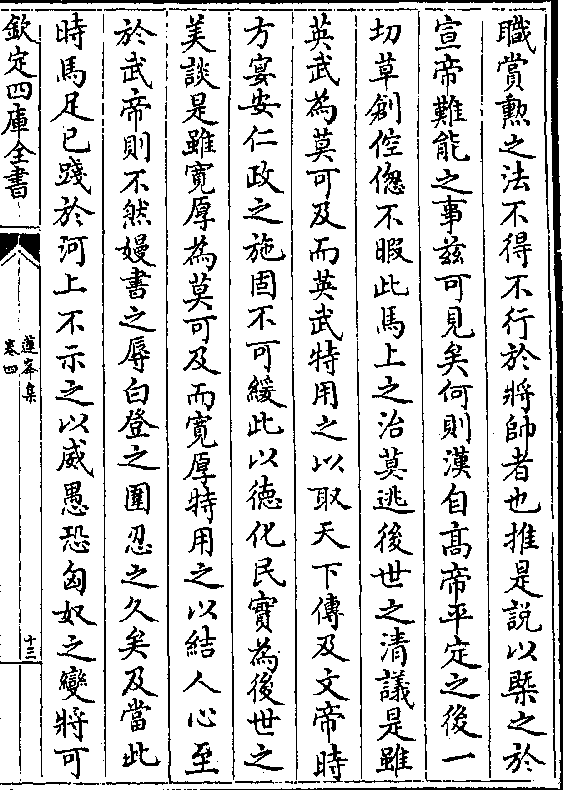 職賞勲之法不得不行於將帥者也推是說以槩之於
宣帝難能之事兹可見矣何則漢自髙帝平定之後一
切草創倥偬不暇此馬上之治莫逃後世之清議是雖
英武為莫可及而英武特用之以取天下傳及文帝時
方宴安仁政之施固不可緩此以徳化民實為後世之
美談是雖寛厚為莫可及而寛厚特用之以結人心至
於武帝則不然嫚書之辱白登之圍忍之久矣及當此
時馬足已踐於河上不示之以威愚恐匈奴之變將可
欽定四庫全書
蓮峯集
卷四
十三